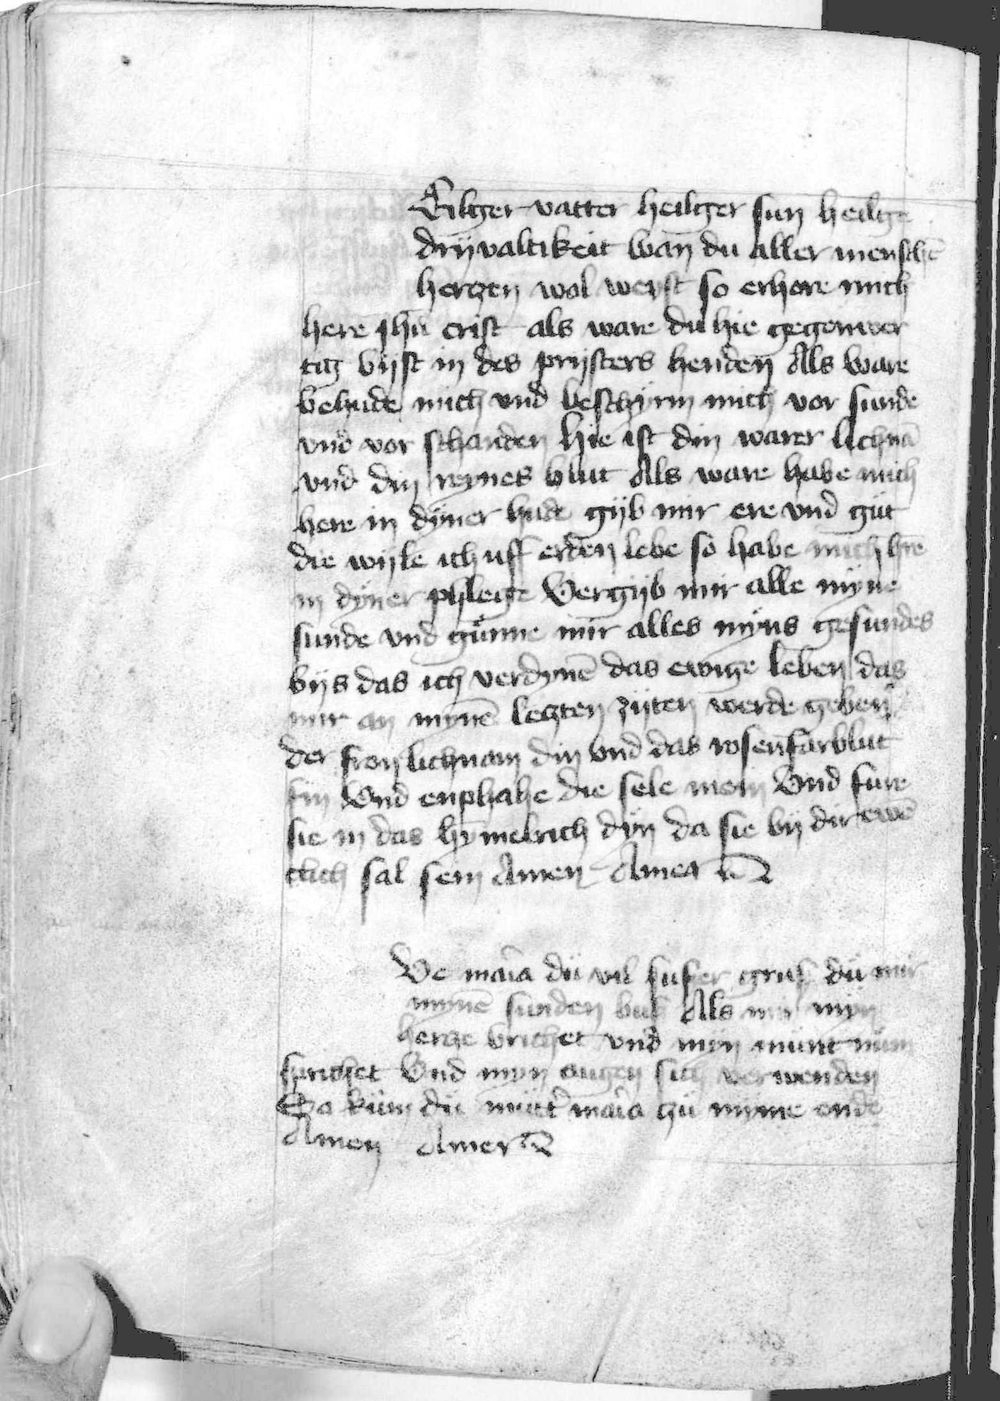 Eilger vatter heiliger sun heilige
drijvaltikeit wan du aller mensche
hertzen wol weyst so erhore mich
here ihu crist als ware du hie gegenwer
tig bijst in des prijsters henden Als ware
behude mich vnd beschyrm mich vor sunde
vnd vor schanden Hie ist din warer lichna
vnd din reynes blut Als ware habe mich
here in dyner hude gijb mir ere vnd gut
die wijle ich uff erden lebe so habe mich hre
in dyner phlege Vergijb mir alle myne
sunde vnd gunne mir alles myns gesundes
bijs das ich verdyne das ewige leben das
mir an myne letzten zijten werde geben
der fron lichnam din vnd das rosenfarblut
sin Vnd enphahe die sele mein Vnd fure
sie in das hymelrich dyn da sie bij dir ewe
clich sal sein Amen Amen
Ve maria du vil suser grus du mir
myne sunden bus Als mir myn
hertze brichet vnd myn munt num
sprichet Vnd myn augen sich verwenden
So kum du mutter maria zu myme ende
Amen Amen